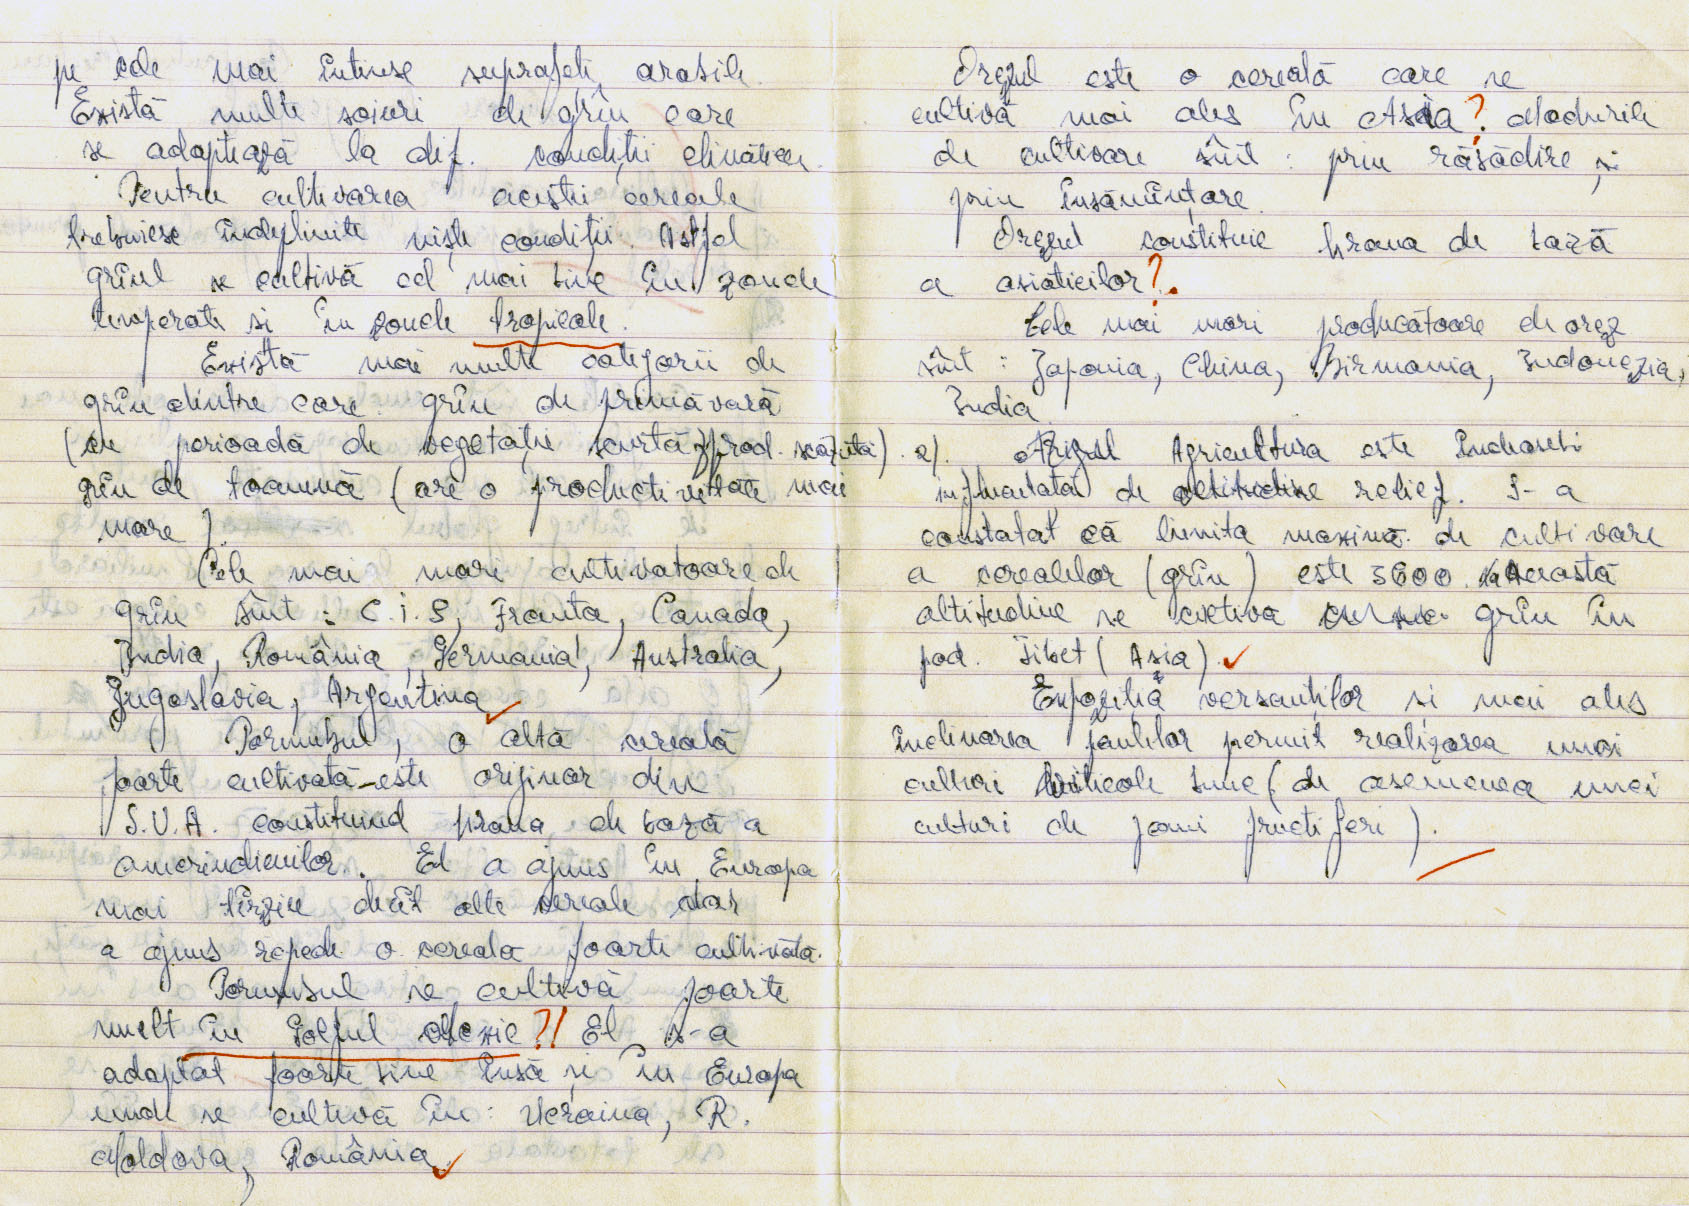 pe cele mai întinse suprafețe arabile.
Există multe soiuri de grîu care
se adaptează la dif. condiții climatice.
Pentru cultivarea acestei cereale
trebuiesc îndeplinite niște condiții. Astfel
grîul se cultivă cel mai bine în zonele
temperate si în zonele tropicale.
Există mai multe categorii de
grîu dintre care grîu de primăvară
(cu perioadă de vegetație scurtă, prod. scăzută)
grîu de toamnă (are o productivitate mai
mare).
Cele mai mari cultivatoare de
grîu sînt: C.I.S, Franta, Canada,
India, România, Germania, Australia,
Jugoslavia, Argentina
Porumbul, o altă cereală
foarte cultivată este originar din
S.U.A. constituind hrana de bază a
amerindienilor. El a ajuns în Europa
mai tîrziu decît alte cereale dar
a ajuns repede o cereală foarte cultivată.
Porumbul se cultivă foarte
mult în Golful Mexic?! El s-a
adaptat foarte bine însă și în Europa
unde se cultivă în: Ucraina, R.
Moldova, România
Orezul este o cereală care se
cultivă mai ales în Asia?. Modurile
de cultivare sînt: prin răsădire și
prin însămînțare.
Orezul constituie hrana de bază
a asiaticilor?.
Cele mai mari producătoare de orez
sînt: Japonia, China, Birmania, Indonezia,
India
2). Agricultura este îndeosebi
influențată de relief. S-a
constatat că limita maximă de cultivare
a cerealelor (grîu) este 3600. Această
altitudine se cultivă grîu în
pod. Tibet (Asia).
Expoziția versanților si mai ales
înclinarea pantelor permit realizarea unei
culturi viticole bune (de asemenea unei
culturi de pomi fructiferi).